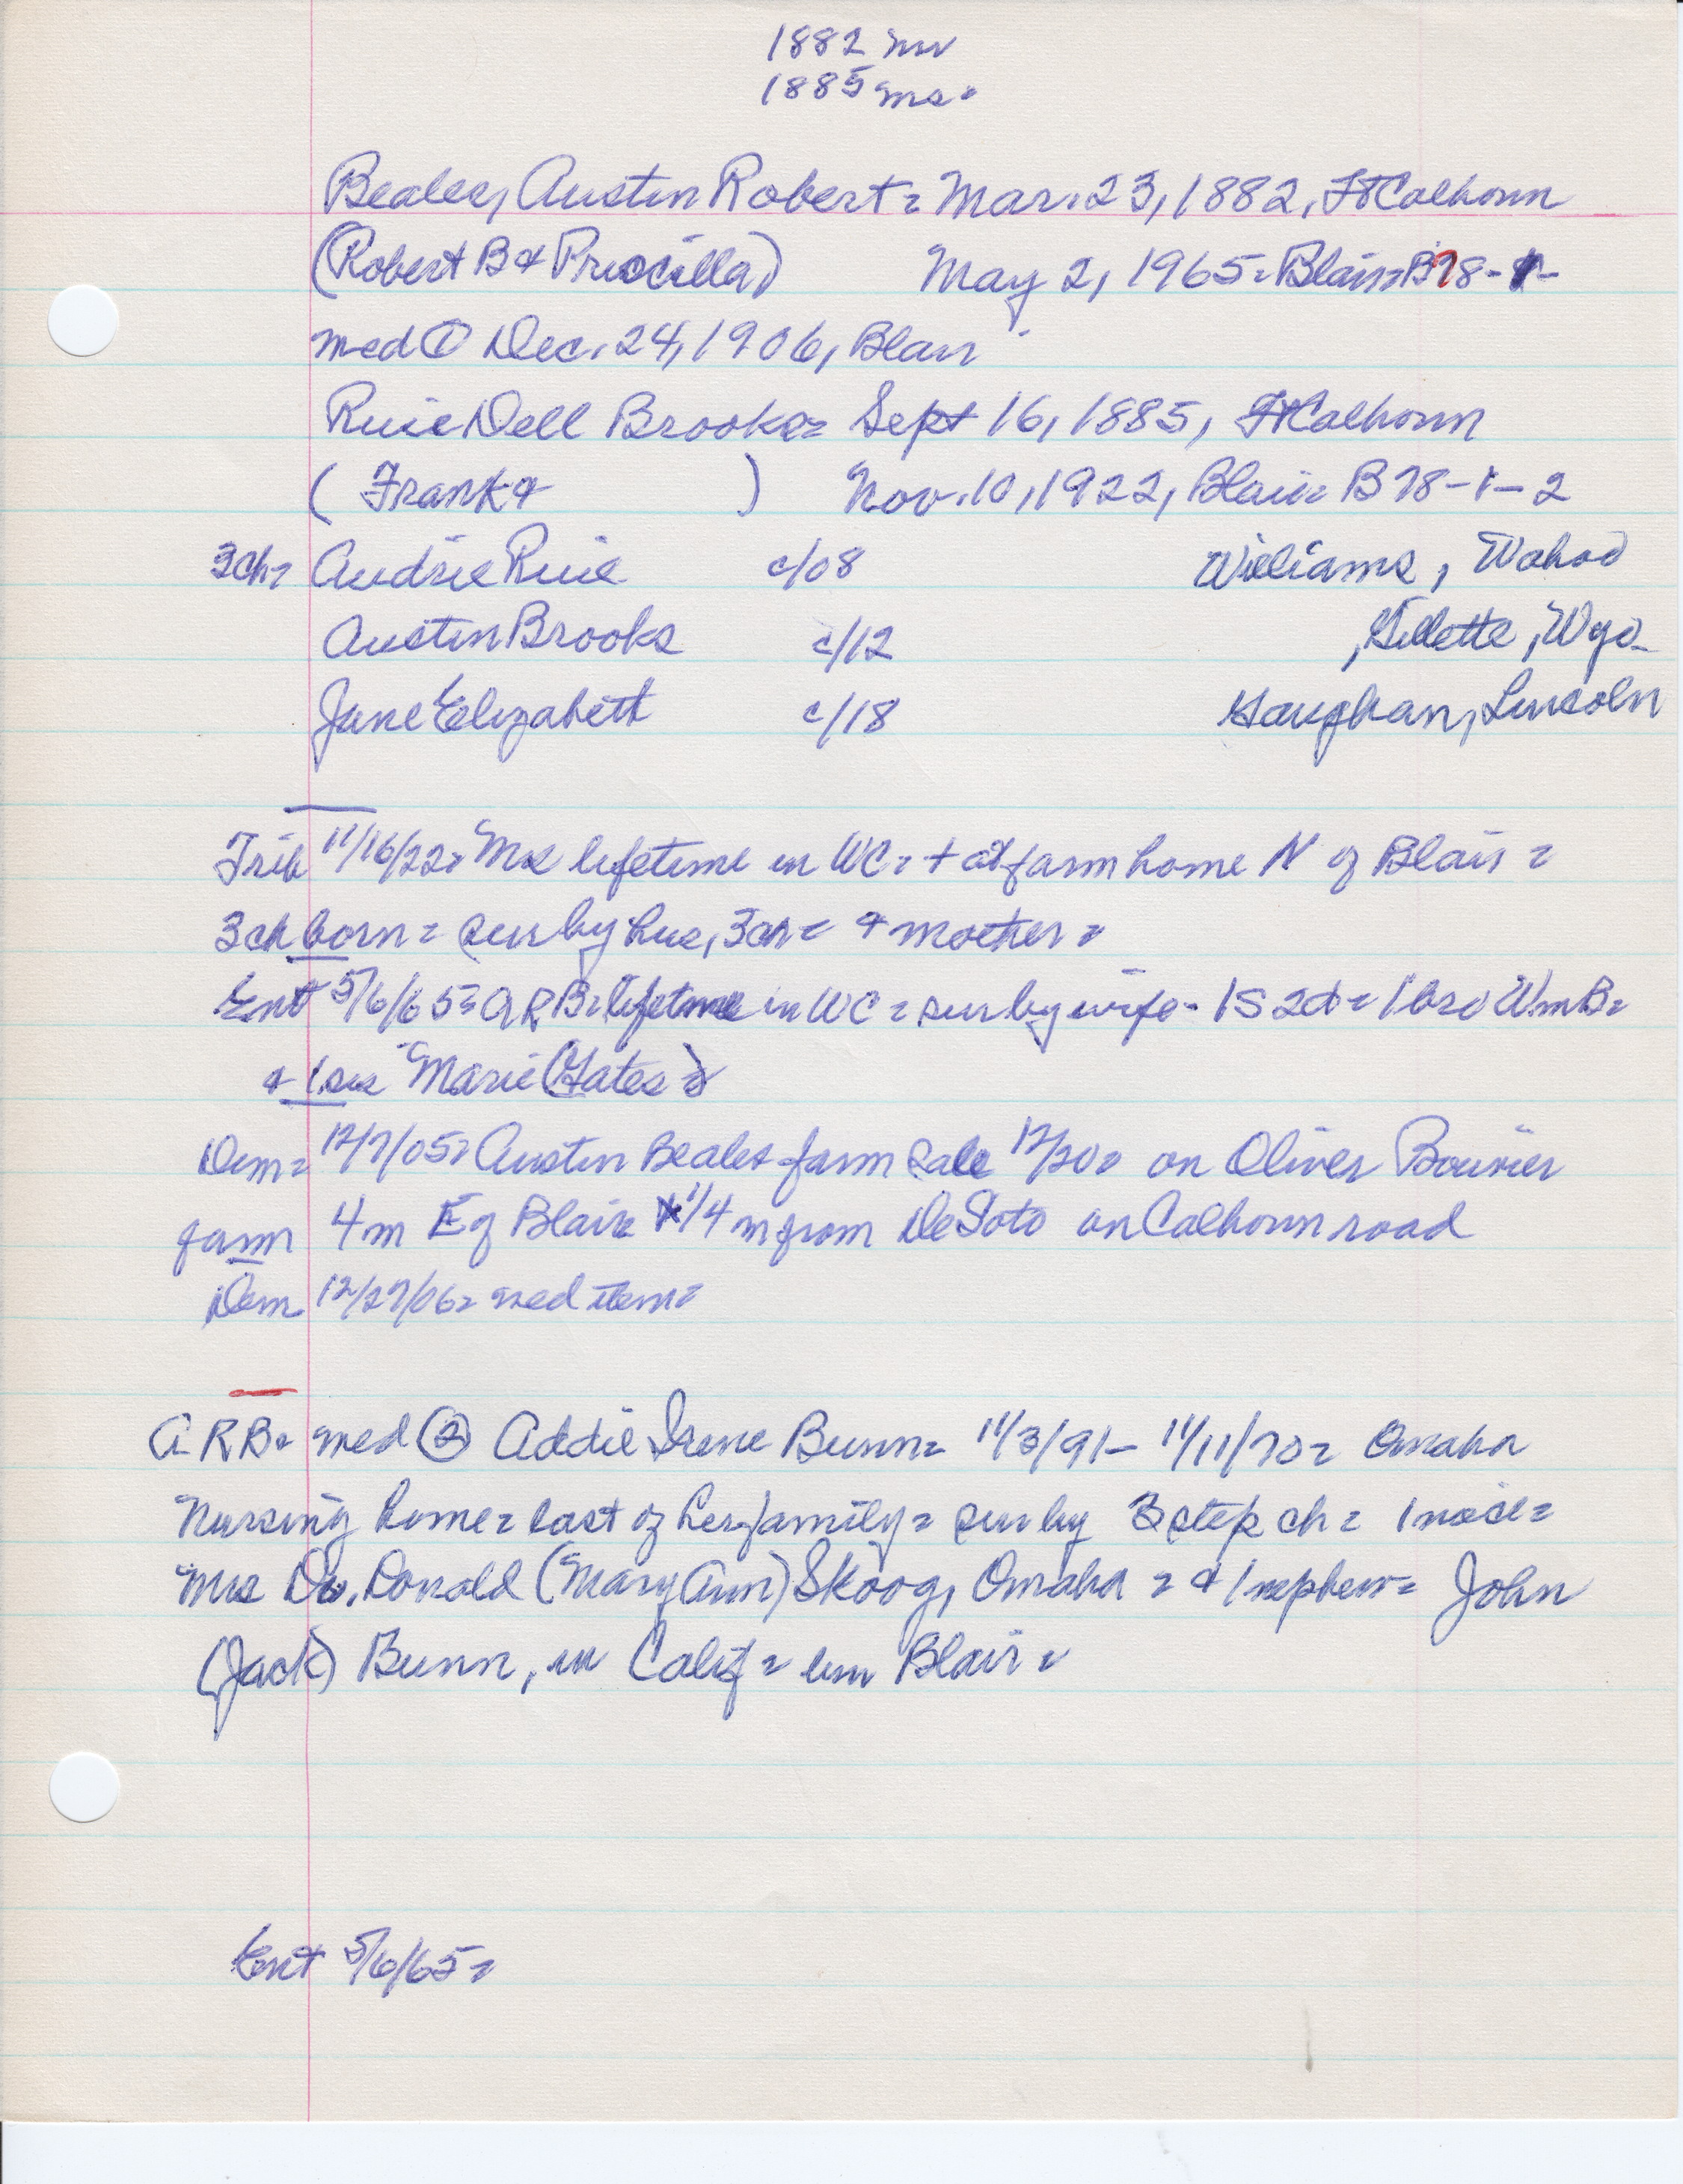 1882 mr
1885 ms.
Beales, Austin Robert = Mar. 23, 1882, Ft Calhoun
(Robert B & Priscilla) May 2, 1965 = Blair = B78-1-
med ① Dec. 24, 1906, Blair
Ruie Dell Brooks = Sept 16, 1885, Ft Calhoun
( Frank & ) Nov. 10, 1922, Blair = B78-1-2
3ch = Audrie Ruie c/08 Williams, Wahoo
Austin Brooks c/12 , Gillette, Wyo-
Jane Elizabeth c/18 Gaughan, Lincoln
Trib 11/16/22 = Ms lifetime in WC = + at farm home N of Blair =
3ch born = sur by hus, 3ch = & mother =
Ent 5/6/65 = A R B = lifetime in WC = sur by wife - 1S 2d = 1 bro WmB =
& 1 sis Marie (Gates) =
Dem = 12/7/05 = Austin Beales farm sale 12/20 = on Oliver Bouvier
farm 4 m E of Blair 1/4 m from DeSoto on Calhoun road
Dem 12/27/06 = med item =
A R B = med ② Addie Irene Bunn = 11/3/91 - 11/11/70 = Omaha
Nursing home = last of her family = sur by 3 step ch = 1 niece =
Mrs Dr. Donald (Mary Ann) Skoog, Omaha = & 1 nephew = John
(Jack) Bunn, in Calif = Blair =
Ent 5/6/65 =